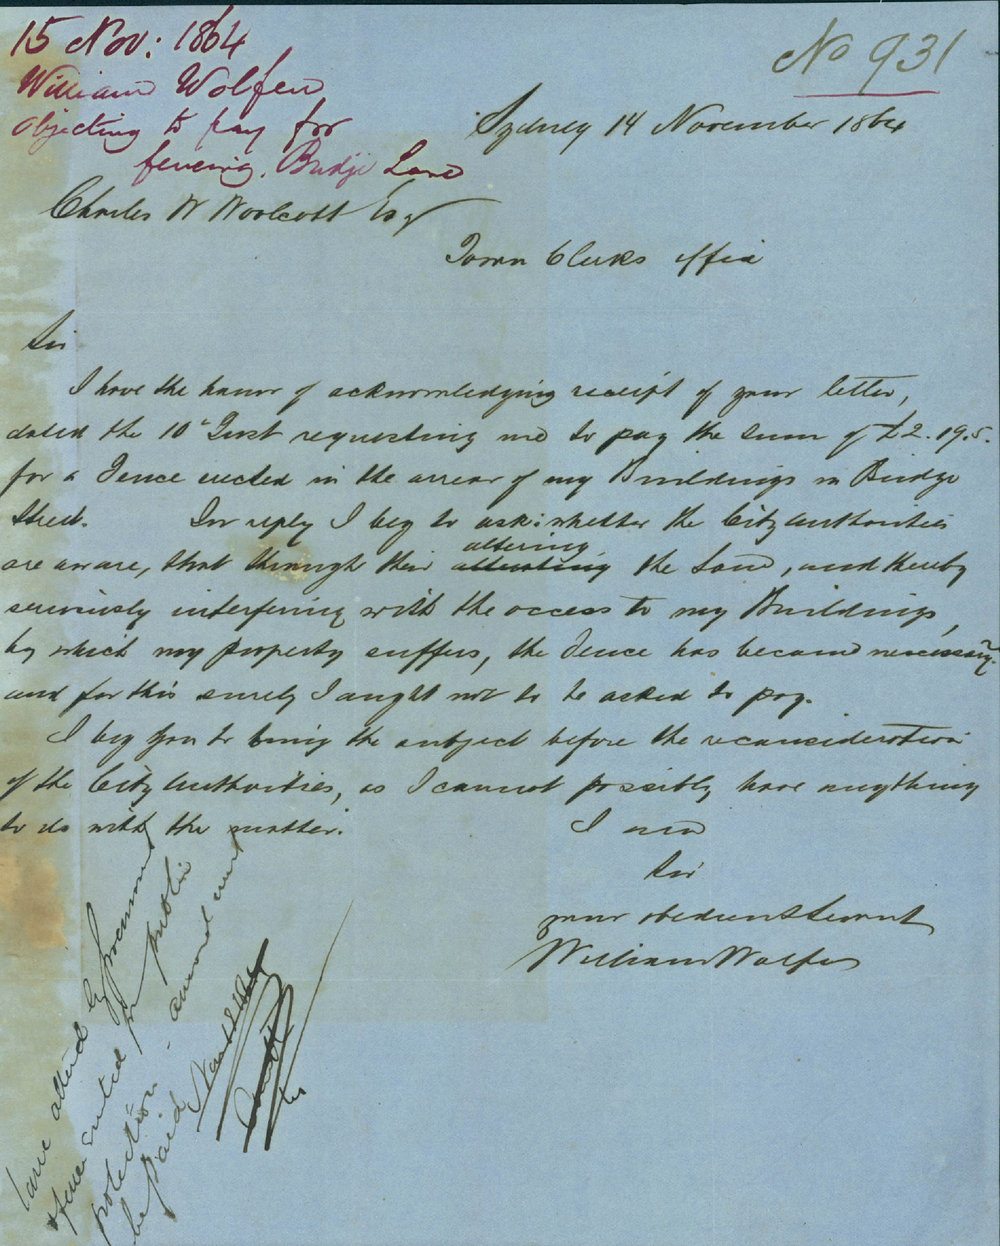 15 Nov: 1864
William Wolfen
objecting to pay for
fencing. Bridge Lane
No 931
Sydney 14 November 1864
Charles W Woolcott Esqr
Town Clerks office
Sir
I have the honor of acknowledging receipt of your letter,
dated the 10th Inst requesting me to pay the sum of £2.19.5.
for a Fence erected in the arrear of my Buildings in Bridge
Street. In reply I beg to ask: whether the City Authorities
altering
are aware, that through their the Land, and thereby
seriously interfering with the access to my Buildings,
by which my property suffers, the Fence has became necessary.
and for this surely I aught not to be asked to pay.
I beg you to bring the subject before the reconsideration
of the City Authorities, as I cannot possibly have anything
to do with the matter.
I am
Sir
your obedient Servant
William Wolfen
Lane altered by Government
& fence erected for public
protection - amount must
be paid